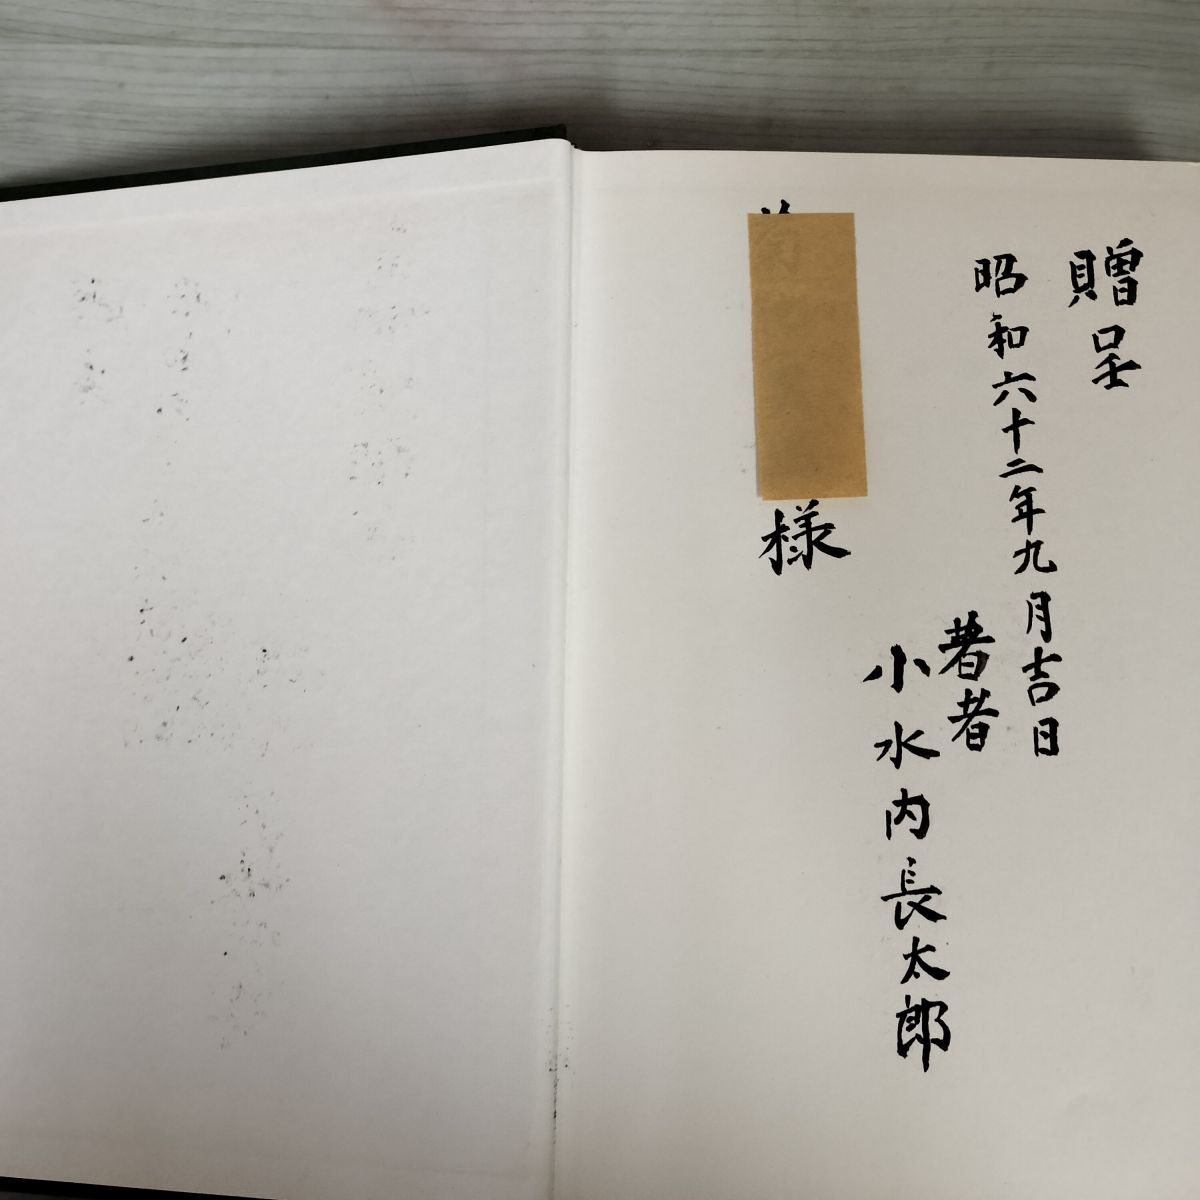 贈呈
昭和六十二年九月吉日
著者
小水内長太郎
様